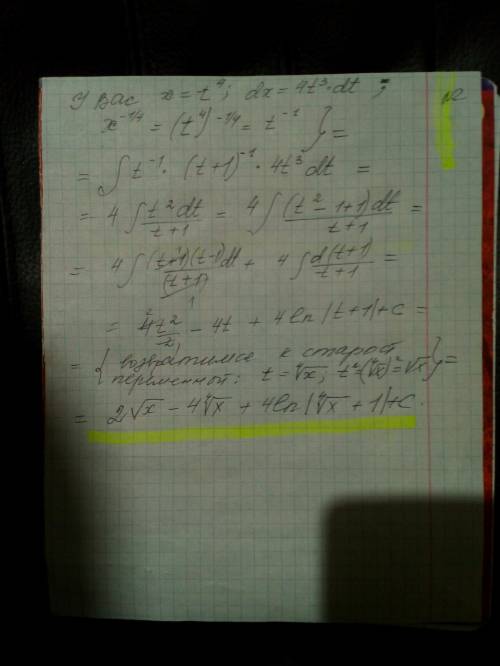 У Вас x = t⁴; dx = 4t³·dt; №2
x^{-1/4} = (t⁴)^{-1/4} = t^{-1} } =
= ∫ t^{-1} · (t+1)^{-1} · 4t³ dt =
= 4 ∫ t² dt / (t+1) = 4 ∫ (t² - 1 + 1) dt / (t+1) =
= 4 ∫ (t+1)(t-1) dt / (t+1) + 4 ∫ d(t+1) / (t+1) =
= 4t²/2 - 4t + 4 ln |t+1| + C =
= { возвратимся к старой
переменной: t = ⁴√x; t² = (⁴√x)² = √x } =
= 2√x - 4⁴√x + 4 ln |⁴√x + 1| + C.